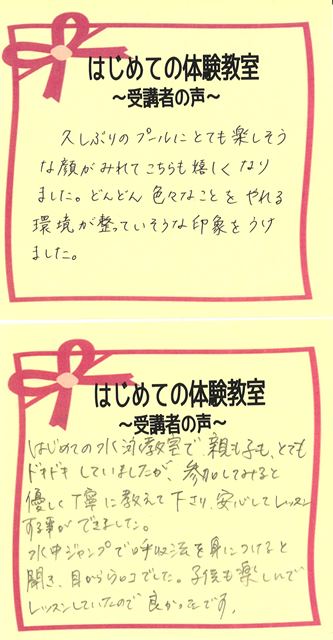 はじめての体験教室
～受講者の声～
久しぶりのプールにとても楽しそう
な顔がみれてこちらも嬉しくなり
ました。どんどん色々なことをやれる
環境が整っていそうな印象をうけ
ました。
はじめての体験教室
～受講者の声～
はじめての水泳教室で、親も子も、とても
ドキドキしていましたが、参加してみると
優しく丁寧に教えて下さり、安心してレッスン
する事ができました。
水中ジャンプで呼吸法を身につけると
聞き、目からウロコでした。子供も楽しんで
レッスンしていたので良かったです。